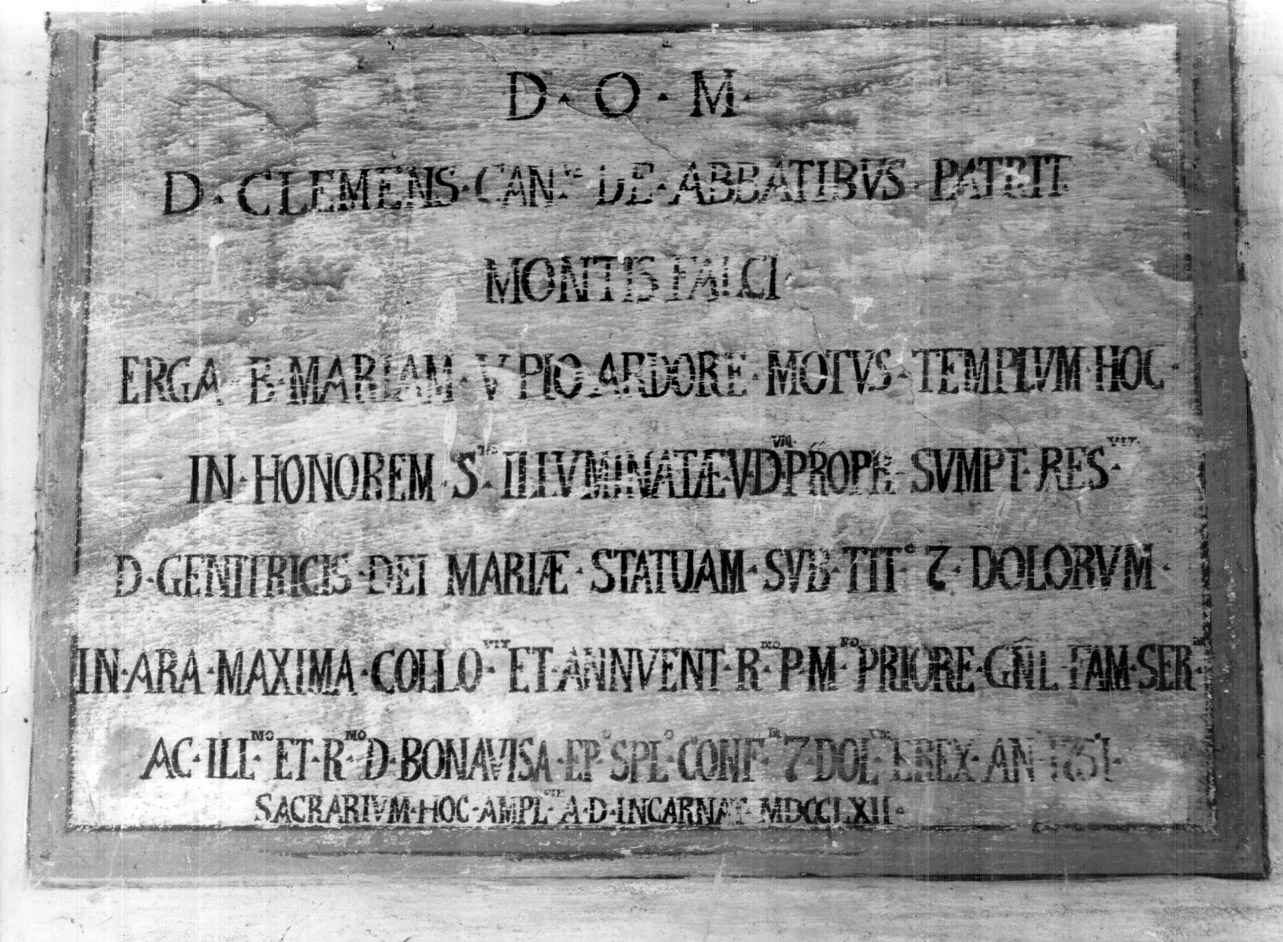 D · O · M ·
D · CLEMENS · CAN · DE · ABBATIBVS PATRIT
MONTIS FALCI ·
ERGA · B · MARIAM · V PIO ARDORE · MOTVS · TEMPLVM · HOC ·
IN · HONOREM · S · ILLVMINATÆ V D PROPR · SVMPT · RES VIT ·
D · GENITRICIS · DEI MARIÆ · STATUAM · SVB · TIT° 7 · DOLORVM ·
IN · ARA · MAXIMA · COLLO VIT ET · ANNVENT · R MO P · M RO PRIORE · GÑL · FAM · SER
AC · ILL MO ET · R MO D · BONAVISA · EP° SPL° CONF · 7 · DOL · EREX · AN · 1751 ·
SACRARIVM · HOC · AMPL A · D · INCARNAT · MDCCLXII ·